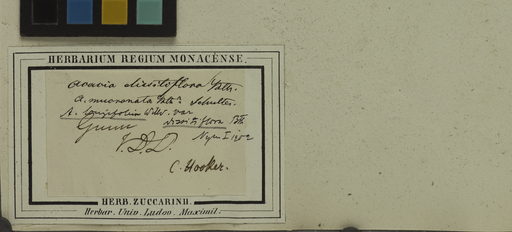 HERBARIUM REGIUM MONACENSE.
Acacia dissitiflora Bth.
A. mucronata Schultes.
A. longifolia Willd. var
dissitiflora Bth.
Gunn
V.D.L.
C. Hooker.
HERB. ZUCCARINII.
Herbar. Univ. Ludov. Maximil.